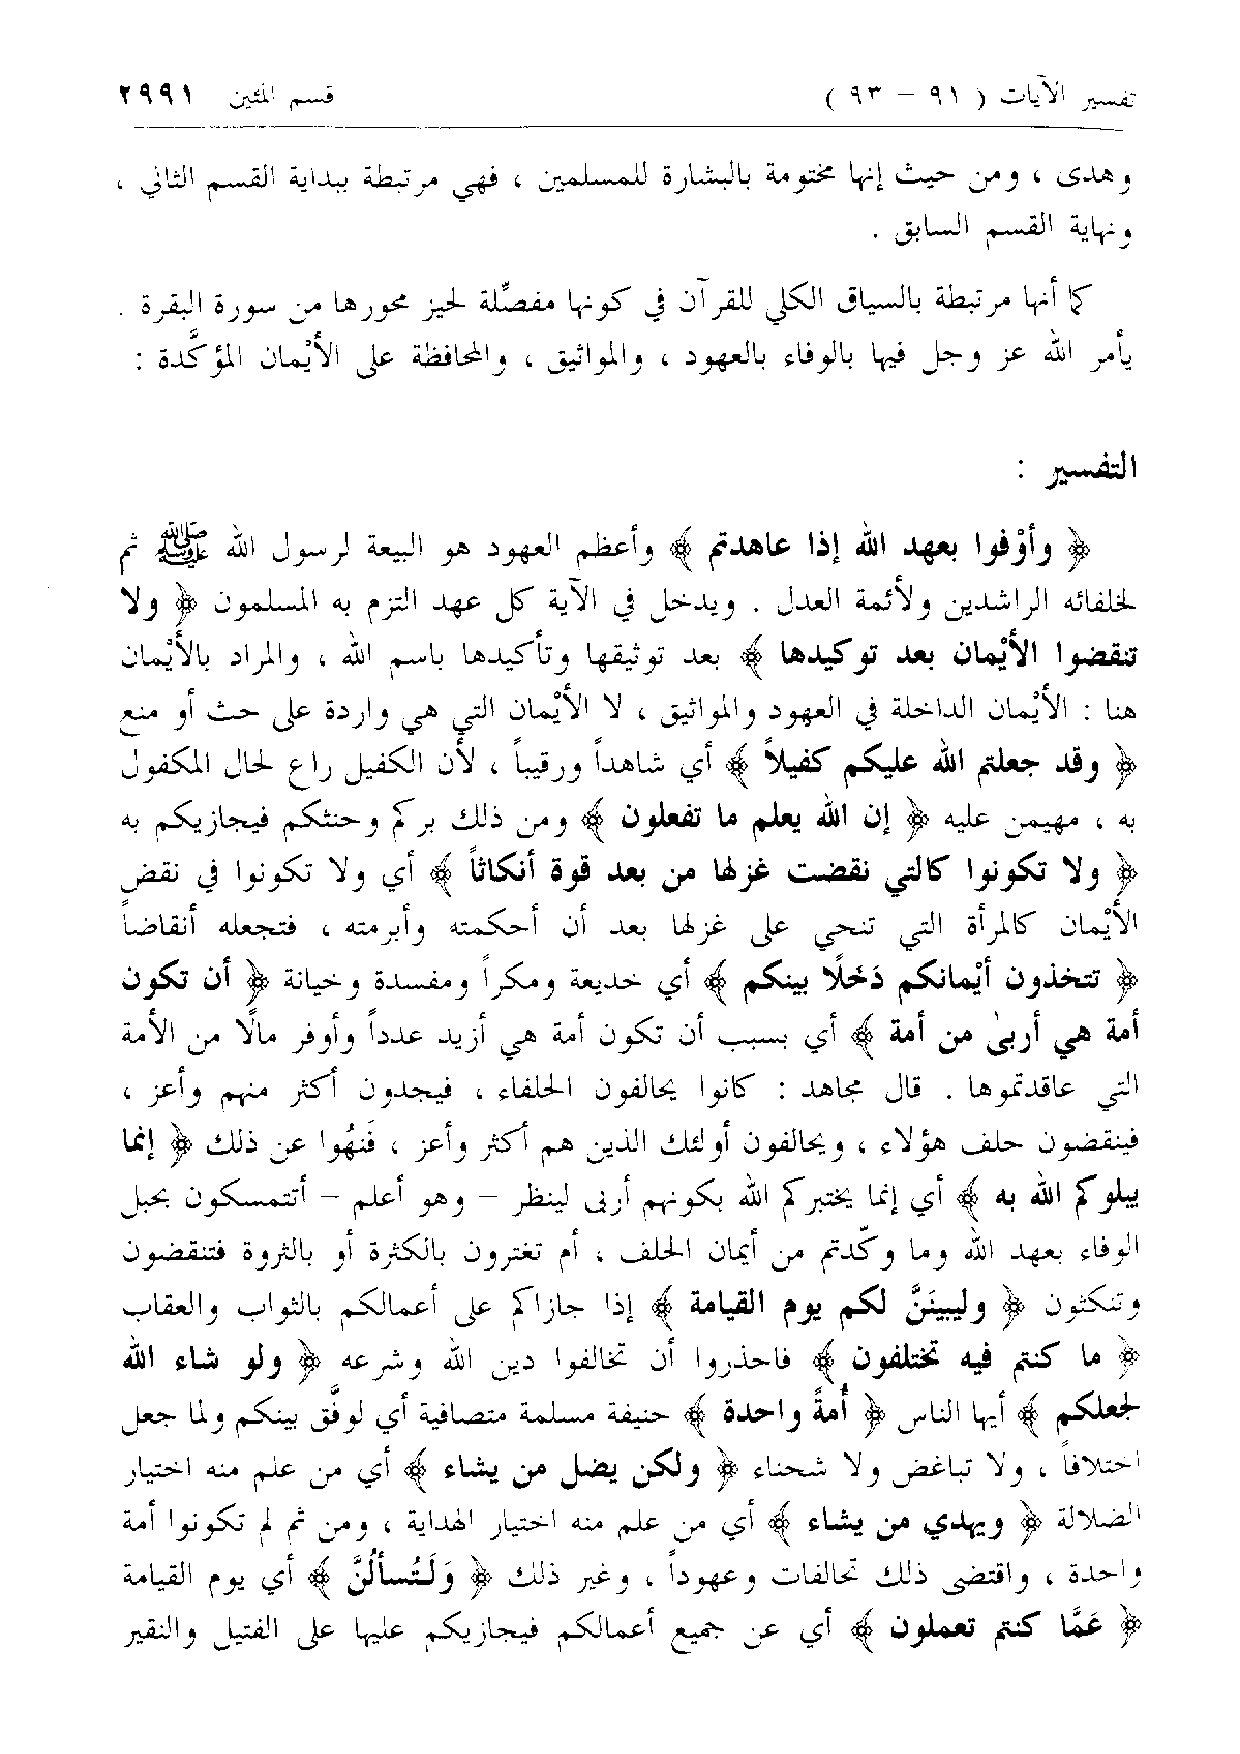 تفسير الآيات ( ٩١ – ٩٣ ) قسم المئين ٢٩٩١
وهدى ، ومن حيث إنها مختومة بالبشارة للمسلمين ، فهي مرتبطة ببداية القسم الثاني ،
ونهاية القسم السابق .
كما أنها مرتبطة بالسياق الكلي للقرآن في كونها مفصّلة لحيز محورها من سورة البقرة .
يأمر الله عز وجل فيها بالوفاء بالعهود ، والمواثيق ، والمحافظة على الأيْمان المؤكَّدة :
التفسير :
﴿ وأوْفوا بعهد الله إذا عاهدتم ﴾ وأعظم العهود هو البيعة لرسول الله ﷺ ثم
لخلفائه الراشدين والأئمة العدل . ويدخل في الآية كل عهد التزم به المسلمون ﴿ ولا
تنقضوا الأيْمان بعد توكيدها ﴾ بعد توثيقها وتأكيدها باسم الله ، والمراد بالأيْمان
هنا : الأيْمان الداخلة في العهود والمواثيق ، لا الأيْمان التي هي واردة على حث أو منع
﴿ وقد جعلتم الله عليكم كفيلاً ﴾ أي شاهداً ورقيباً ، لأن الكفيل راع لحال المكفول
به ، مهيمن عليه ﴿ إن الله يعلم ما تفعلون ﴾ ومن ذلك بركم وحنثكم فيجازيكم به
﴿ ولا تكونوا كالتي نقضت غزلها من بعد قوة أنكاثاً ﴾ أي ولا تكونوا في نقض
الأيْمان كالمرأة التي تنحي على غزلها بعد أن أحكمته وأبرمته ، فتجعله أنقاضاً
﴿ تتخذون أيْمانكم دَخَلاً بينكم ﴾ أي خديعة ومكراً ومفسدة وخيانة ﴿ أن تكون
أمة هي أربىٰ من أمة ﴾ أي بسبب أن تكون أمة هي أزيد عدداً وأوفر مالًا من الأمة
التي عاقدتموها . قال مجاهد : كانوا يحالفون الحلفاء ، فيجدون أكثر منهم وأعز ،
فينقضون حلف هؤلاء ، ويحالفون أولئك الذين هم أكثر وأعز ، فَنُهوا عن ذلك ﴿ إنما
يبلوكم الله به ﴾ أي إنما يختبركم الله بكونهم أربى لينظر – وهو أعلم – أتتمسكون بحبل
الوفاء بعهد الله وما وكّدتم من أيمان الحلف ، أم تغترون بالكثرة أو بالثروة فتنقضون
وتنكثون ﴿ وليبيّنَنَّ لكم يوم القيامة ﴾ إذا جازاكم على أعمالكم بالثواب والعقاب
﴿ ما كنتم فيه تختلفون ﴾ فاحذروا أن تخالفوا دين الله وشرعه ﴿ ولو شاء الله
لجعلكم ﴾ أيها الناس ﴿ أُمةً واحدة ﴾ حنيفة مسلمة متصافية أي لوفَّق بينكم ولما جعل
اختلافاً ، ولا تباغض ولا شحناء ﴿ ولكن يضل من يشاء ﴾ أي من علم منه اختيار
الضلالة ﴿ ويهدي من يشاء ﴾ أي من علم منه اختيار الهداية ، ومن ثم لم تكونوا أمة
واحدة ، واقتضى ذلك تحالفات وعهوداً ، وغير ذلك ﴿ وَلَتُسألُنَّ ﴾ أي يوم القيامة
﴿ عَمَّا كنتم تعملون ﴾ أي عن جميع أعمالكم فيجازيكم عليها على الفتيل والنقير